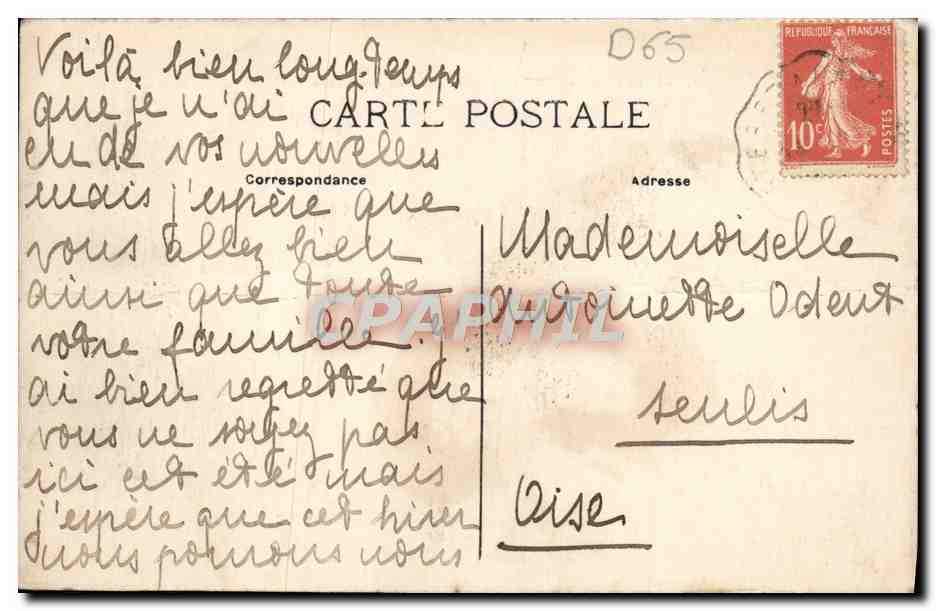 D65
RÉPUBLIQUE FRANÇAISE
10c
POSTES
CARTE POSTALE
Correspondance
Adresse
Voilà bien longtemps
que je n'ai
eu de vos nouvelles
mais j'espère que
vous allez bien
ainsi que toute
votre famille. j'
ai bien regretté que
vous ne soyez pas
ici cet été mais
j'espère que cet hiver
nous pourrons nous
Mademoiselle
Antoinette Odent
Senlis
Oise
CPAPHIL